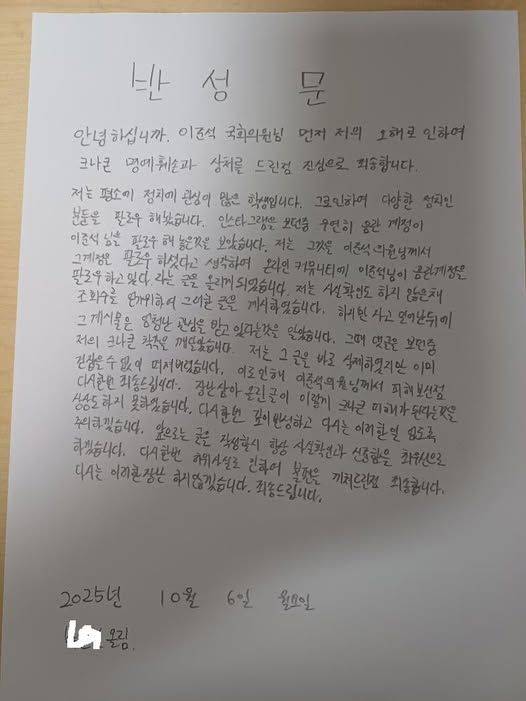 반 성 문
안녕하십니까. 이준석 국회의원님 먼저 저의 오해로 인하여
크나큰 명예훼손과 상처를 드린점 진심으로 죄송합니다.
저는 평소에 정치에 관심이 많은 학생입니다. 그로인하여 다양한 정치인
분들을 팔로우 해놨습니다. 인스타그램을 보던중 우연히 음란 계정이
이준석 님을 팔로우 해 놓은것을 보았습니다. 저는 그것을 이준석 의원님께서
그계정은 팔로우 하셨다고 생각하여 온라인 커뮤니티에 이준석님이 음란계정을
팔로우하고 있다. 라는 글을 올리게 되었습니다. 저는 사실확인도 하지 않은채
조회수를 얻기위하여 그러한 글을 게시하였습니다. 하지만 자고 일어난뒤에
그 게시물은 엄청난 관심을 받고 있다는것을 알았습니다. 그때 댓글을 보던중
저의 크나큰 착각을 깨달았습니다. 저는 그 글을 바로 삭제하였지만 이미
걷잡을수 없이 퍼져버렸습니다. 이로 인해 이준석의원님께서 피해보신점
다시한번 죄송드립니다. 장난삼아 올린글이 이렇게 크나큰 피해가 된다는것을
상상도하지 못하였습니다. 다시한번 깊이반성하고 다시는 이러한일 없도록
주의하겠습니다. 앞으로는 글을 작성할시 항상 사실확인과 신중함을 최우선으로
하겠습니다. 다시한번 허위사실로 인하여 불편을 끼쳐드린점 죄송합니다.
다시는 이러한장난 하지않겠습니다. 죄송드립니다.
2025년 10월 6일 월요일
올림.